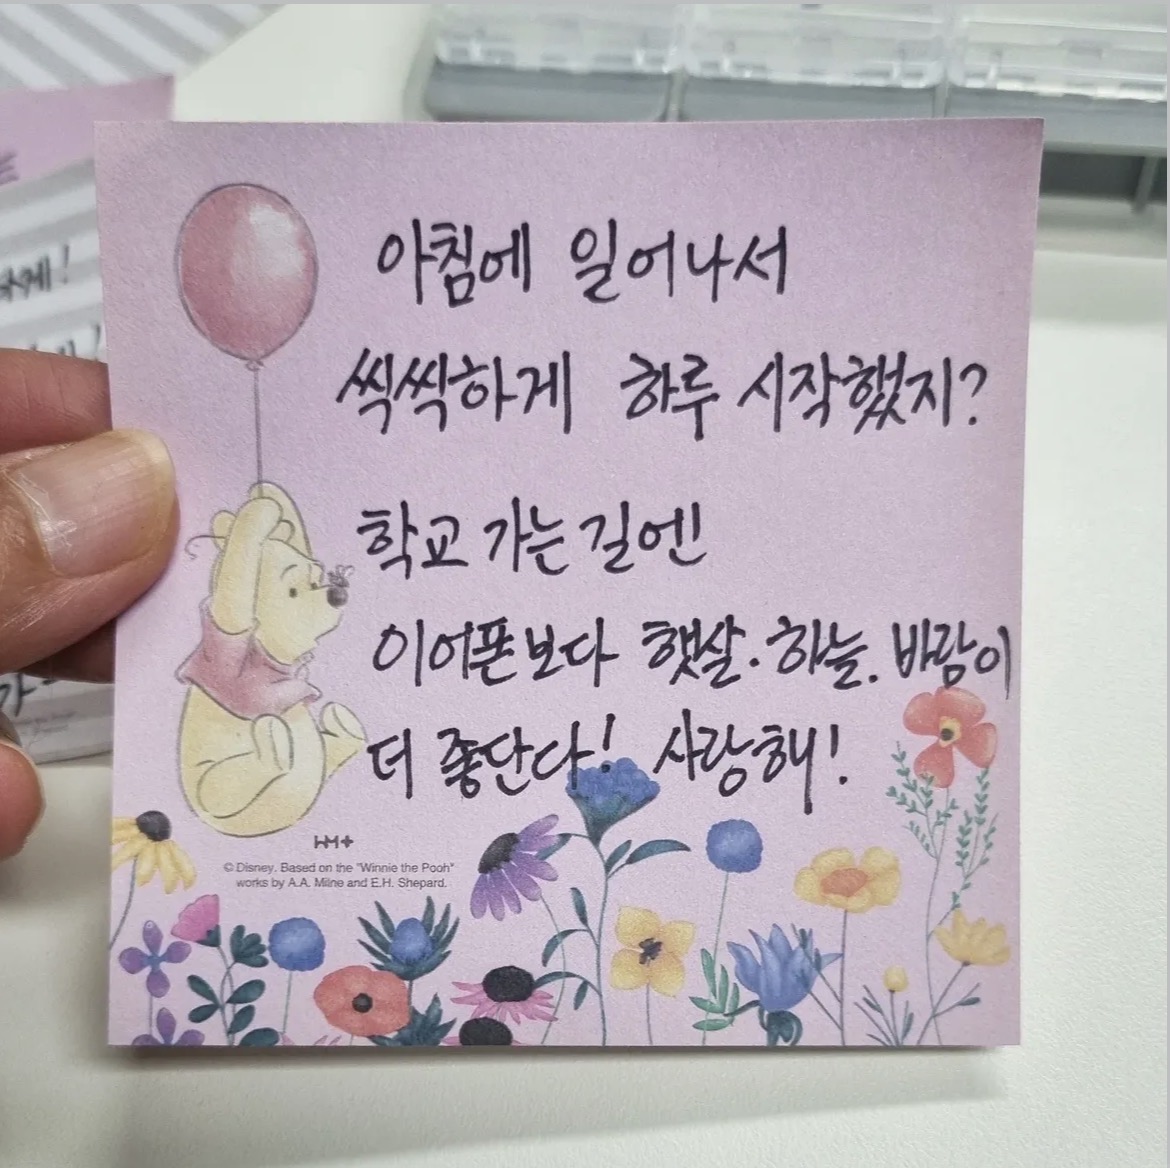 하게!
아침에 일어나서
씩씩하게 하루 시작했지?
학교 가는 길엔
이어폰보다 햇살·하늘·바람이
더 좋단다! 사랑해!
HM+
© Disney. Based on the "Winnie the Pooh"
works by A.A. Milne and E.H. Shepard.